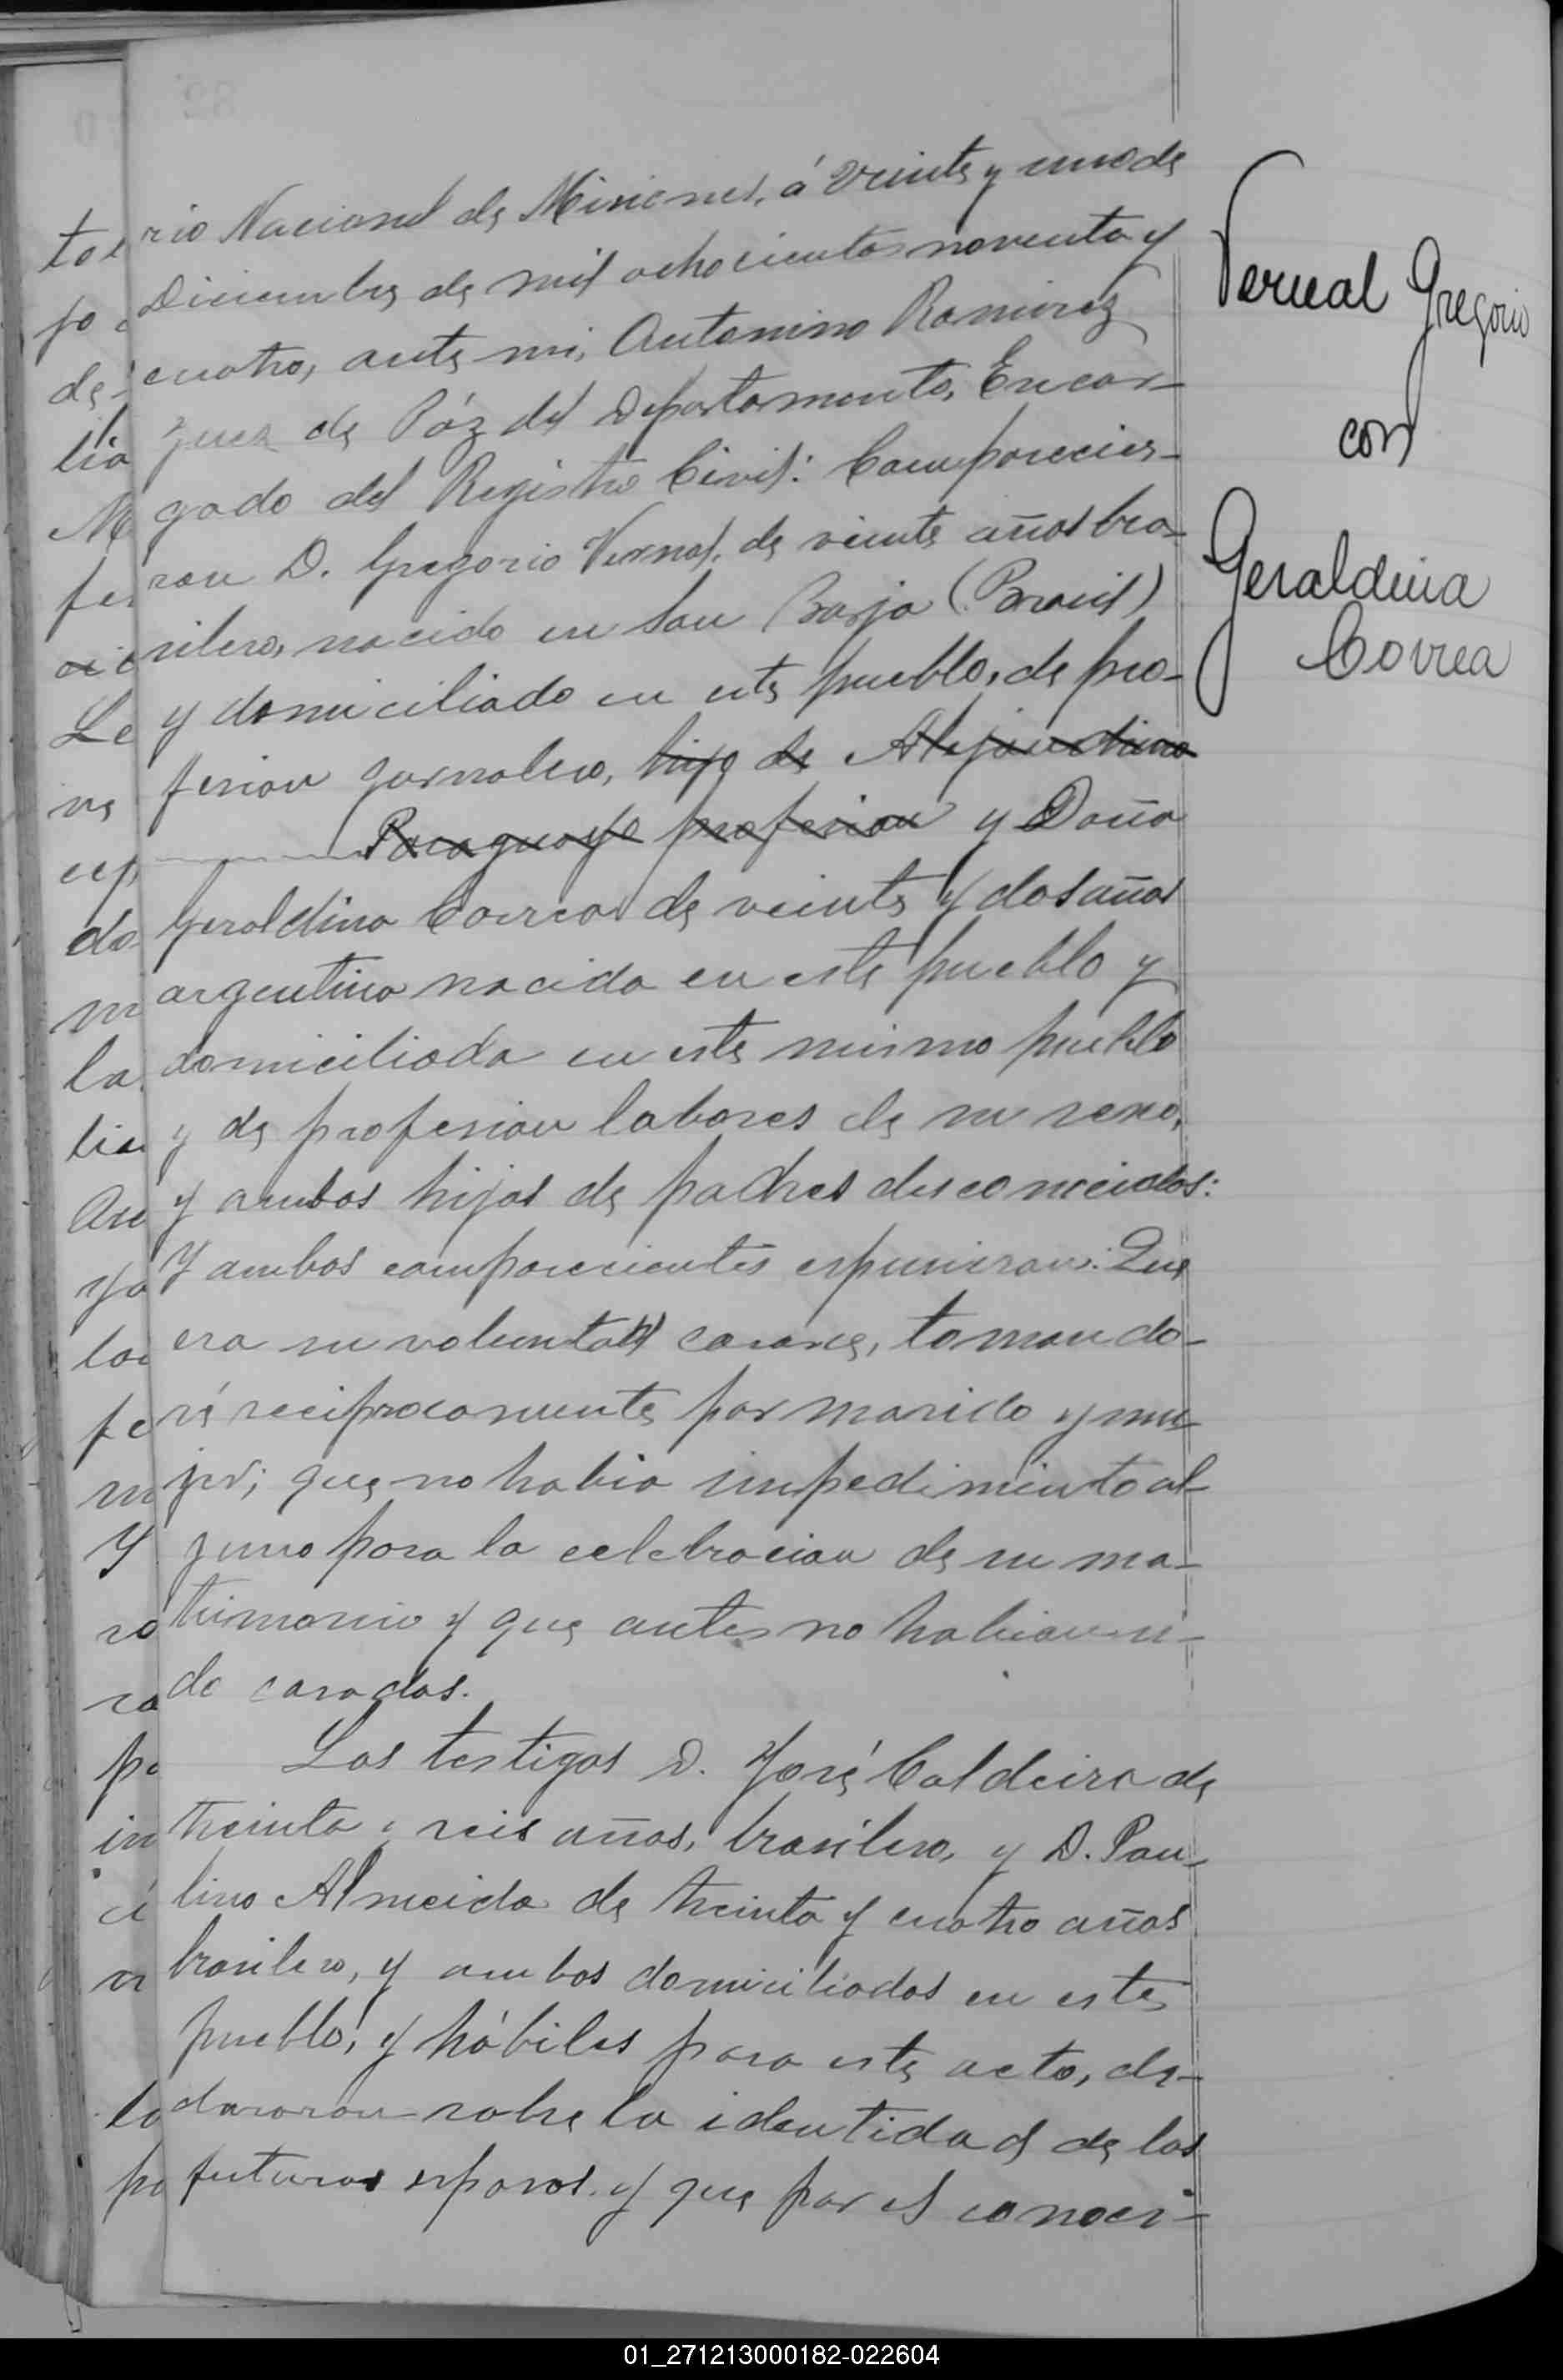 rio Nacional de Misiones, á veinte y uno de
Diciembre de mil ochocientos noventa y
cuatro, ante mi, Antonino Ramirez
Juez de Páz del Departamento, Encar-
gado del Registro Civil: Comparecie-
ron D. Gregorio Vernal, de veinte años bra-
silero, nacido en San Borja (Brasil)
y domiciliado en este pueblo, de pro-
fesion jornalero, hijo de Alejandrina
Paraguaya profesion y Doña
Geraldina Correa de veinte y dos años
argentina nacida en este pueblo y
domiciliada en este mismo pueblo
y de profesion labores de su sexo,
y ambos hijos de padres desconocidos:
Y ambos comparecientes espusieron: Que
era su voluntad casarse, tomando-
sé reciprocamente por marido y mu-
jer; que no habia impedimento al-
guno para la celebracion de su ma-
trimonio y que antes no habian si-
do casados.
Los testigos D. José Caldeira de
treinta y seis años, brasilero, y D. Pau-
lino Almeida de treinta y cuatro años
brasilero, y ambos domiciliados en este
pueblo, y hábiles para este acto, de-
clararon sobre la identidad de los
futuros esposos y que por el conoci-
Vernal Gregorio
con
Geraldina
Correa
to
jo
de
lia
M
fe
Le
ve
esp
do
m
la
lia
An
ya
los
fe
m
Y
ro
ra
po
in
ci
lo
po
01_271213000182-022604